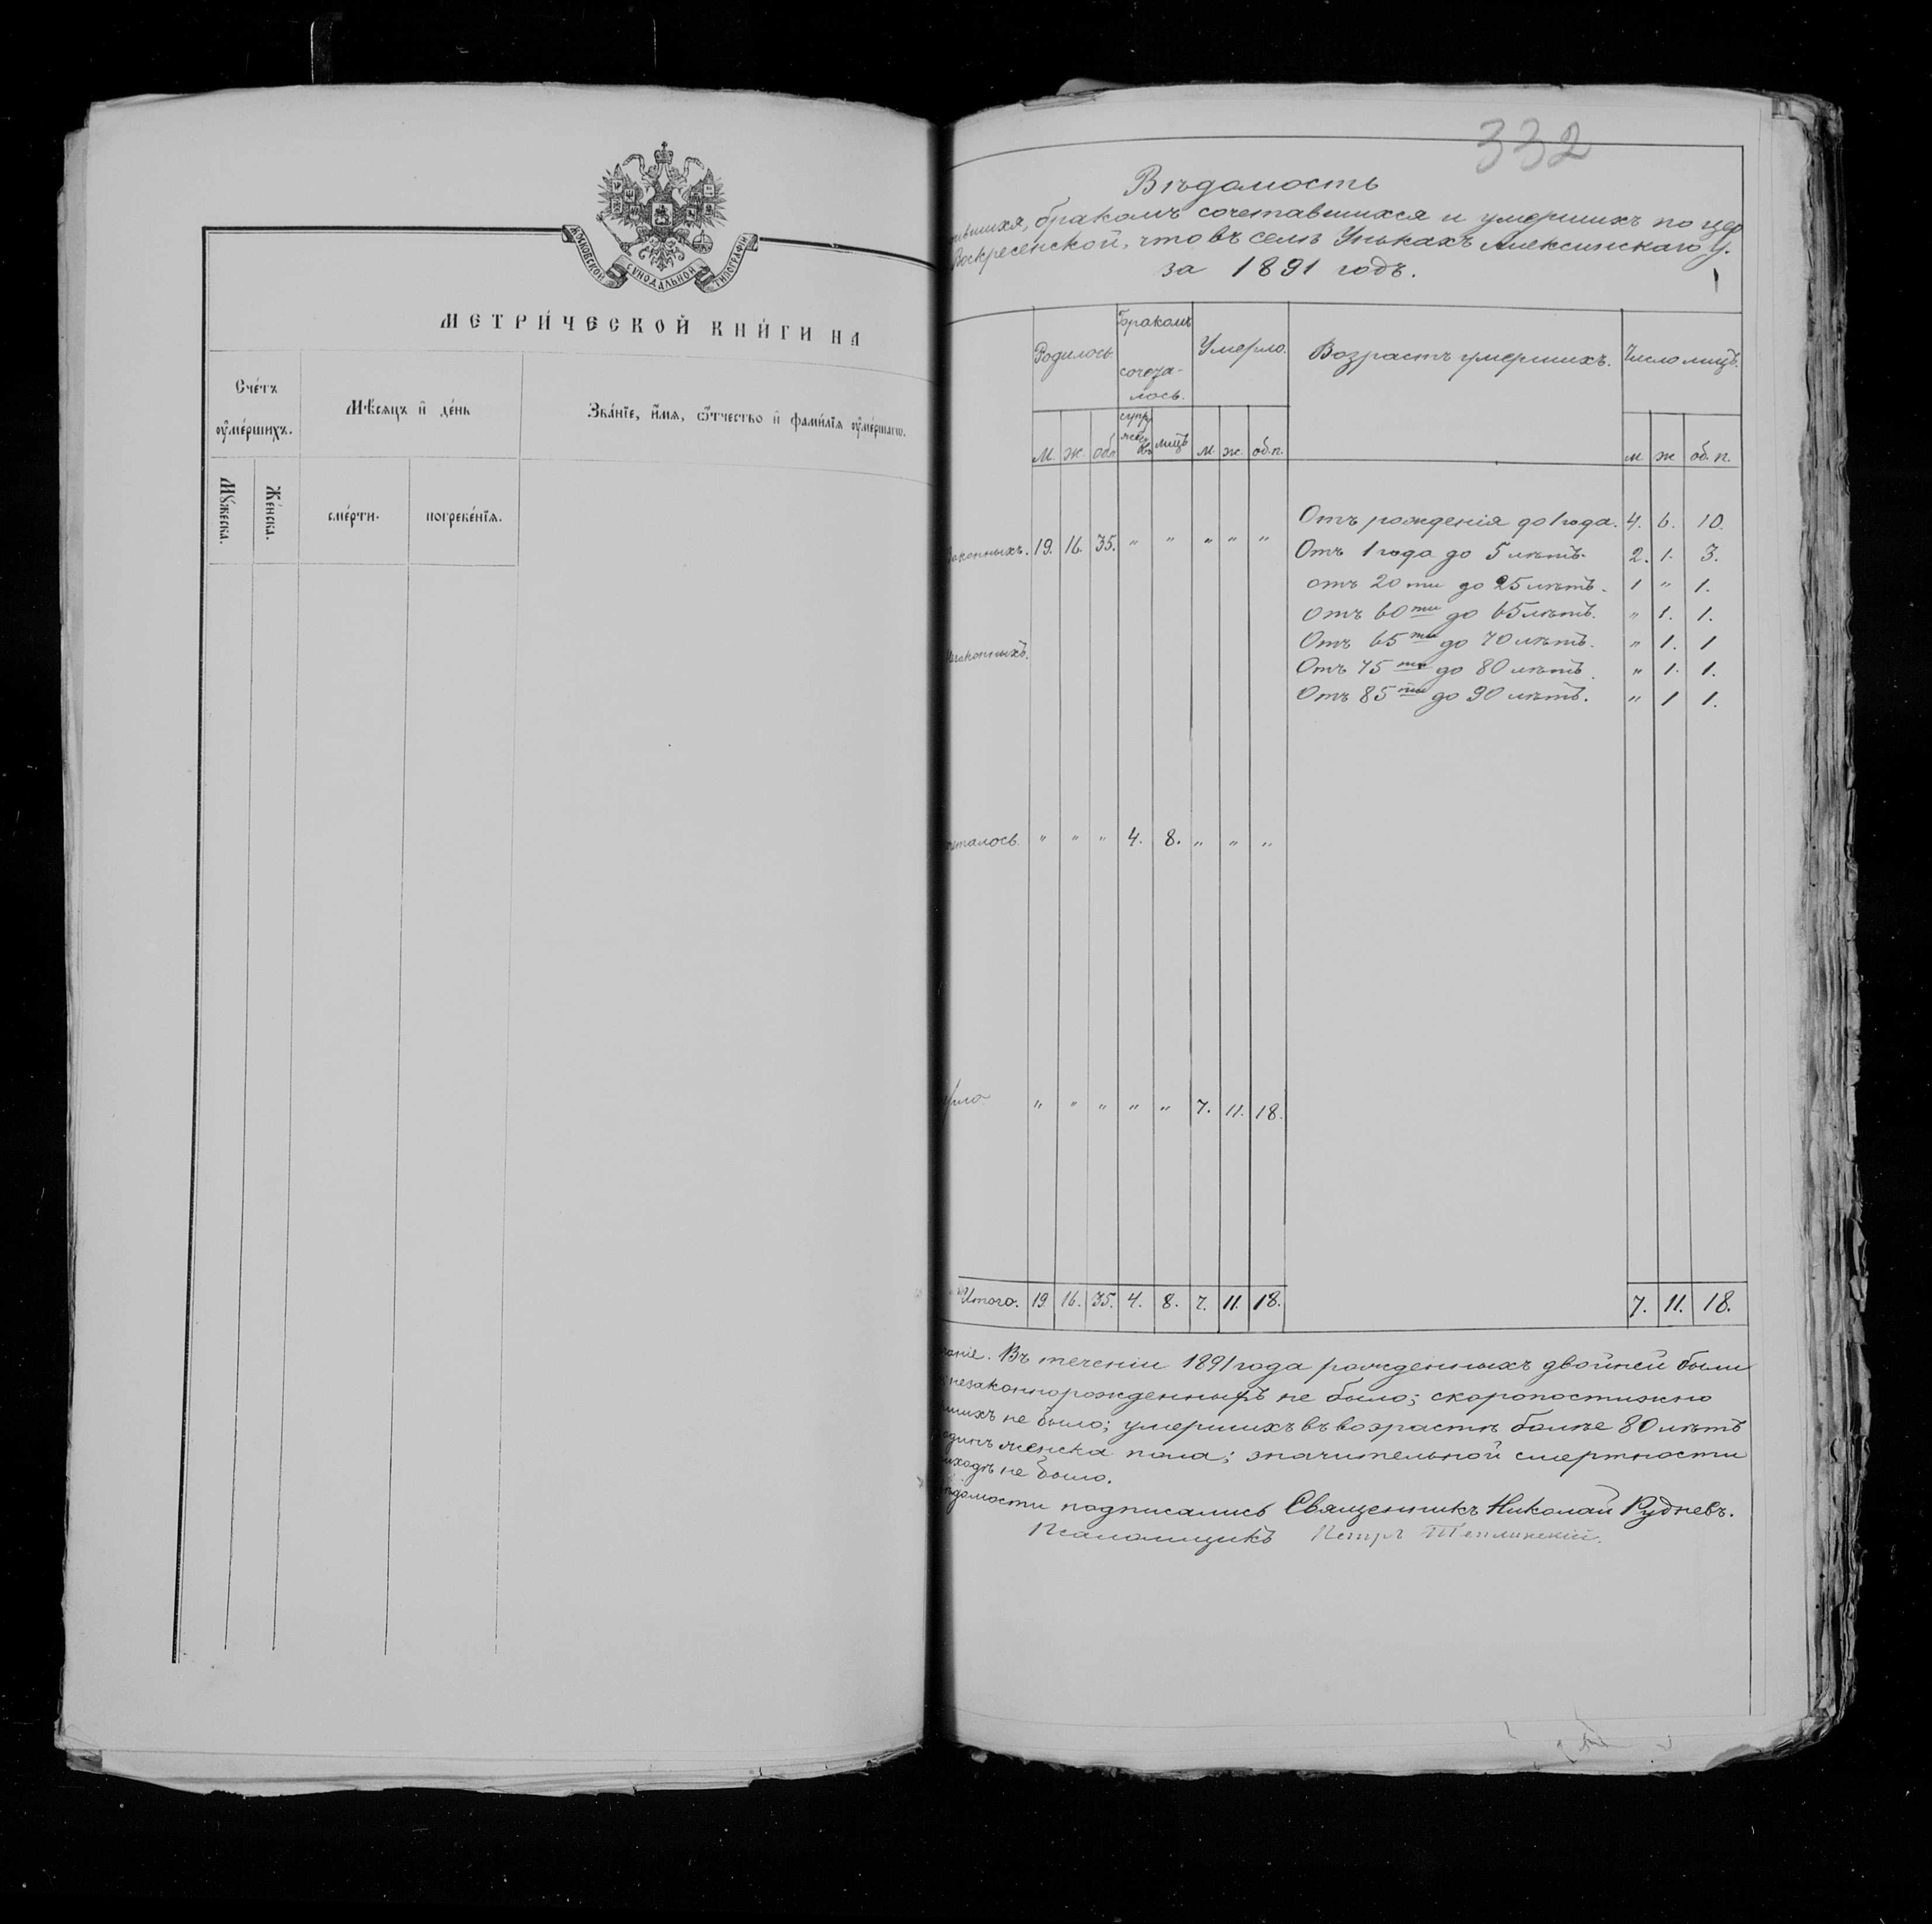 МОСКОВСКОЙ СѴНОДАЛЬНОЙ ТИПОГРАФІИ
МЕТРИ́ЧЕСКОЙ КНИ́ГИ НА
Сче́тъ
оумéршихъ.
Мѣсяцъ и де́нь
Зва́нїе, и́мя, о́тчество и фами́лїя оумéршагw.
Мꙋ́жеска.
Же́нска.
сме́рти.
погребе́нїя.
332
Вѣдомость
вшихся, бракомъ сочетавшихся и умершихъ по цер
Воскресенской, что въ селѣ Унькахъ Алексинскаго у.
за 1891 годъ.
Родилось.
Бракомъ
сочета-
лось.
Умерло.
Возрастъ умершихъ.
Число лицъ.
м. ж. об. супру жес въ лицъ м ж. об.п.
м ж об. п.
Законныхъ. 19. 16. 35. " " " " "
законныхъ.
Отъ рожденія до 1 года. 4. 6. 10.
Отъ 1 года до 5 лѣтъ. 2. 1. 3.
отъ 20 ти до 25 лѣтъ. 1 " 1.
Отъ 60 ти до 65 лѣтъ. " 1. 1.
Отъ 65 ти до 70 лѣтъ. " 1. 1
Отъ 75 ти до 80 лѣтъ. " 1. 1.
Отъ 85 ти до 90 лѣтъ. " 1 1.
четалось. " " " 4. 8. " " "
" " " " " 7. 11. 18.
Итого. 19. 16. 35. 4. 8. 7. 11. 18. 7. 11. 18.
чаніе. Въ теченіи 1891 года рожденныхъ двойней были
незаконнорожденныхъ не было; скоропостижно
шихъ не было; умершихъ въ возрастѣ болѣе 80 лѣтъ
одинъ женска пола; значительной смертности
иходѣ не было.
ѣдомости подписались Священникъ Николай Рудневъ.
Псаломщикъ Петръ Теплинскій.